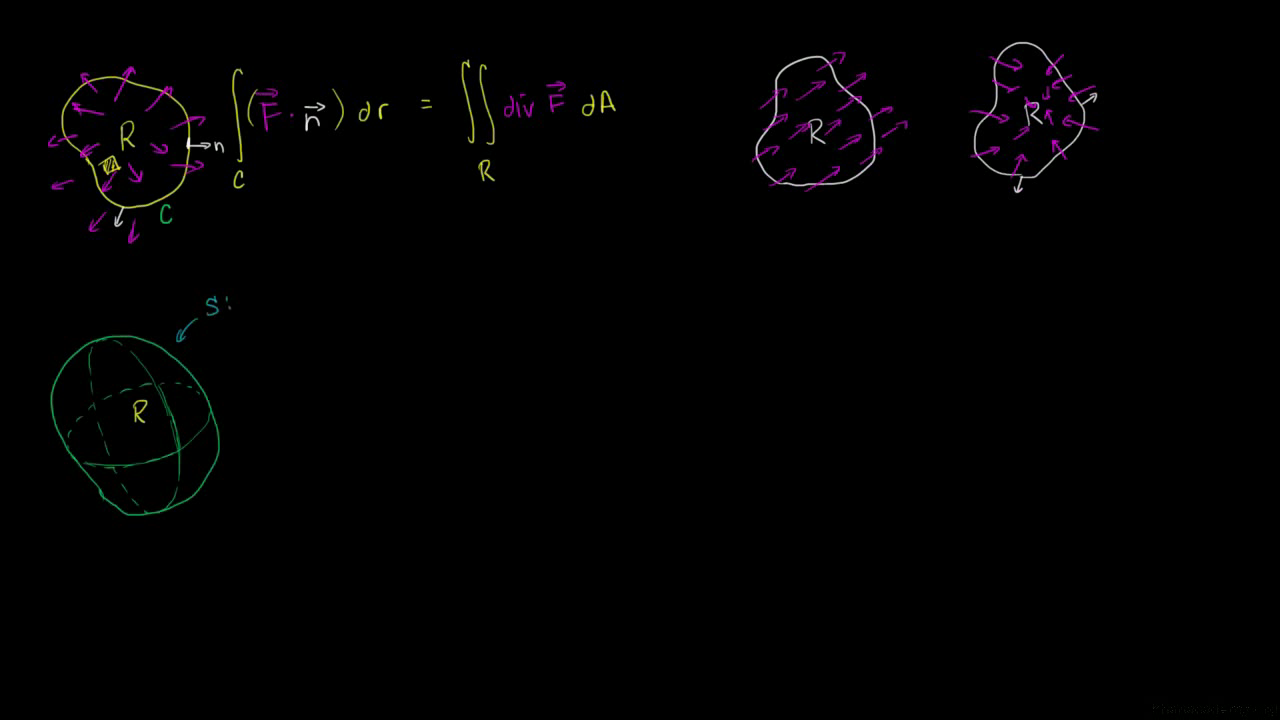 R n C
∫_C (F⃗ · n⃗) dr = ∬_R div F⃗ dA
R
R
S:
R